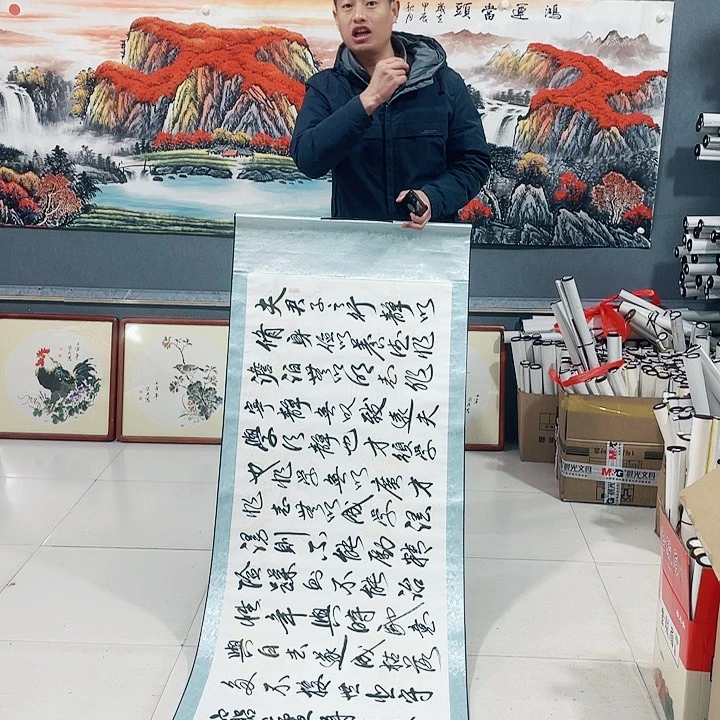 鴻運當頭
歲在
甲辰
秋月
夫君子之行靜以
脩身儉以養德非
澹泊無以明志非
寧靜無以致遠夫
學須靜也才須學
也非學無以廣才
非志無以成學淫
則不能勵精
險躁則不能治
性年與時馳意
與日去遂成枯落
多不接世悲守
M&G 晨光文具